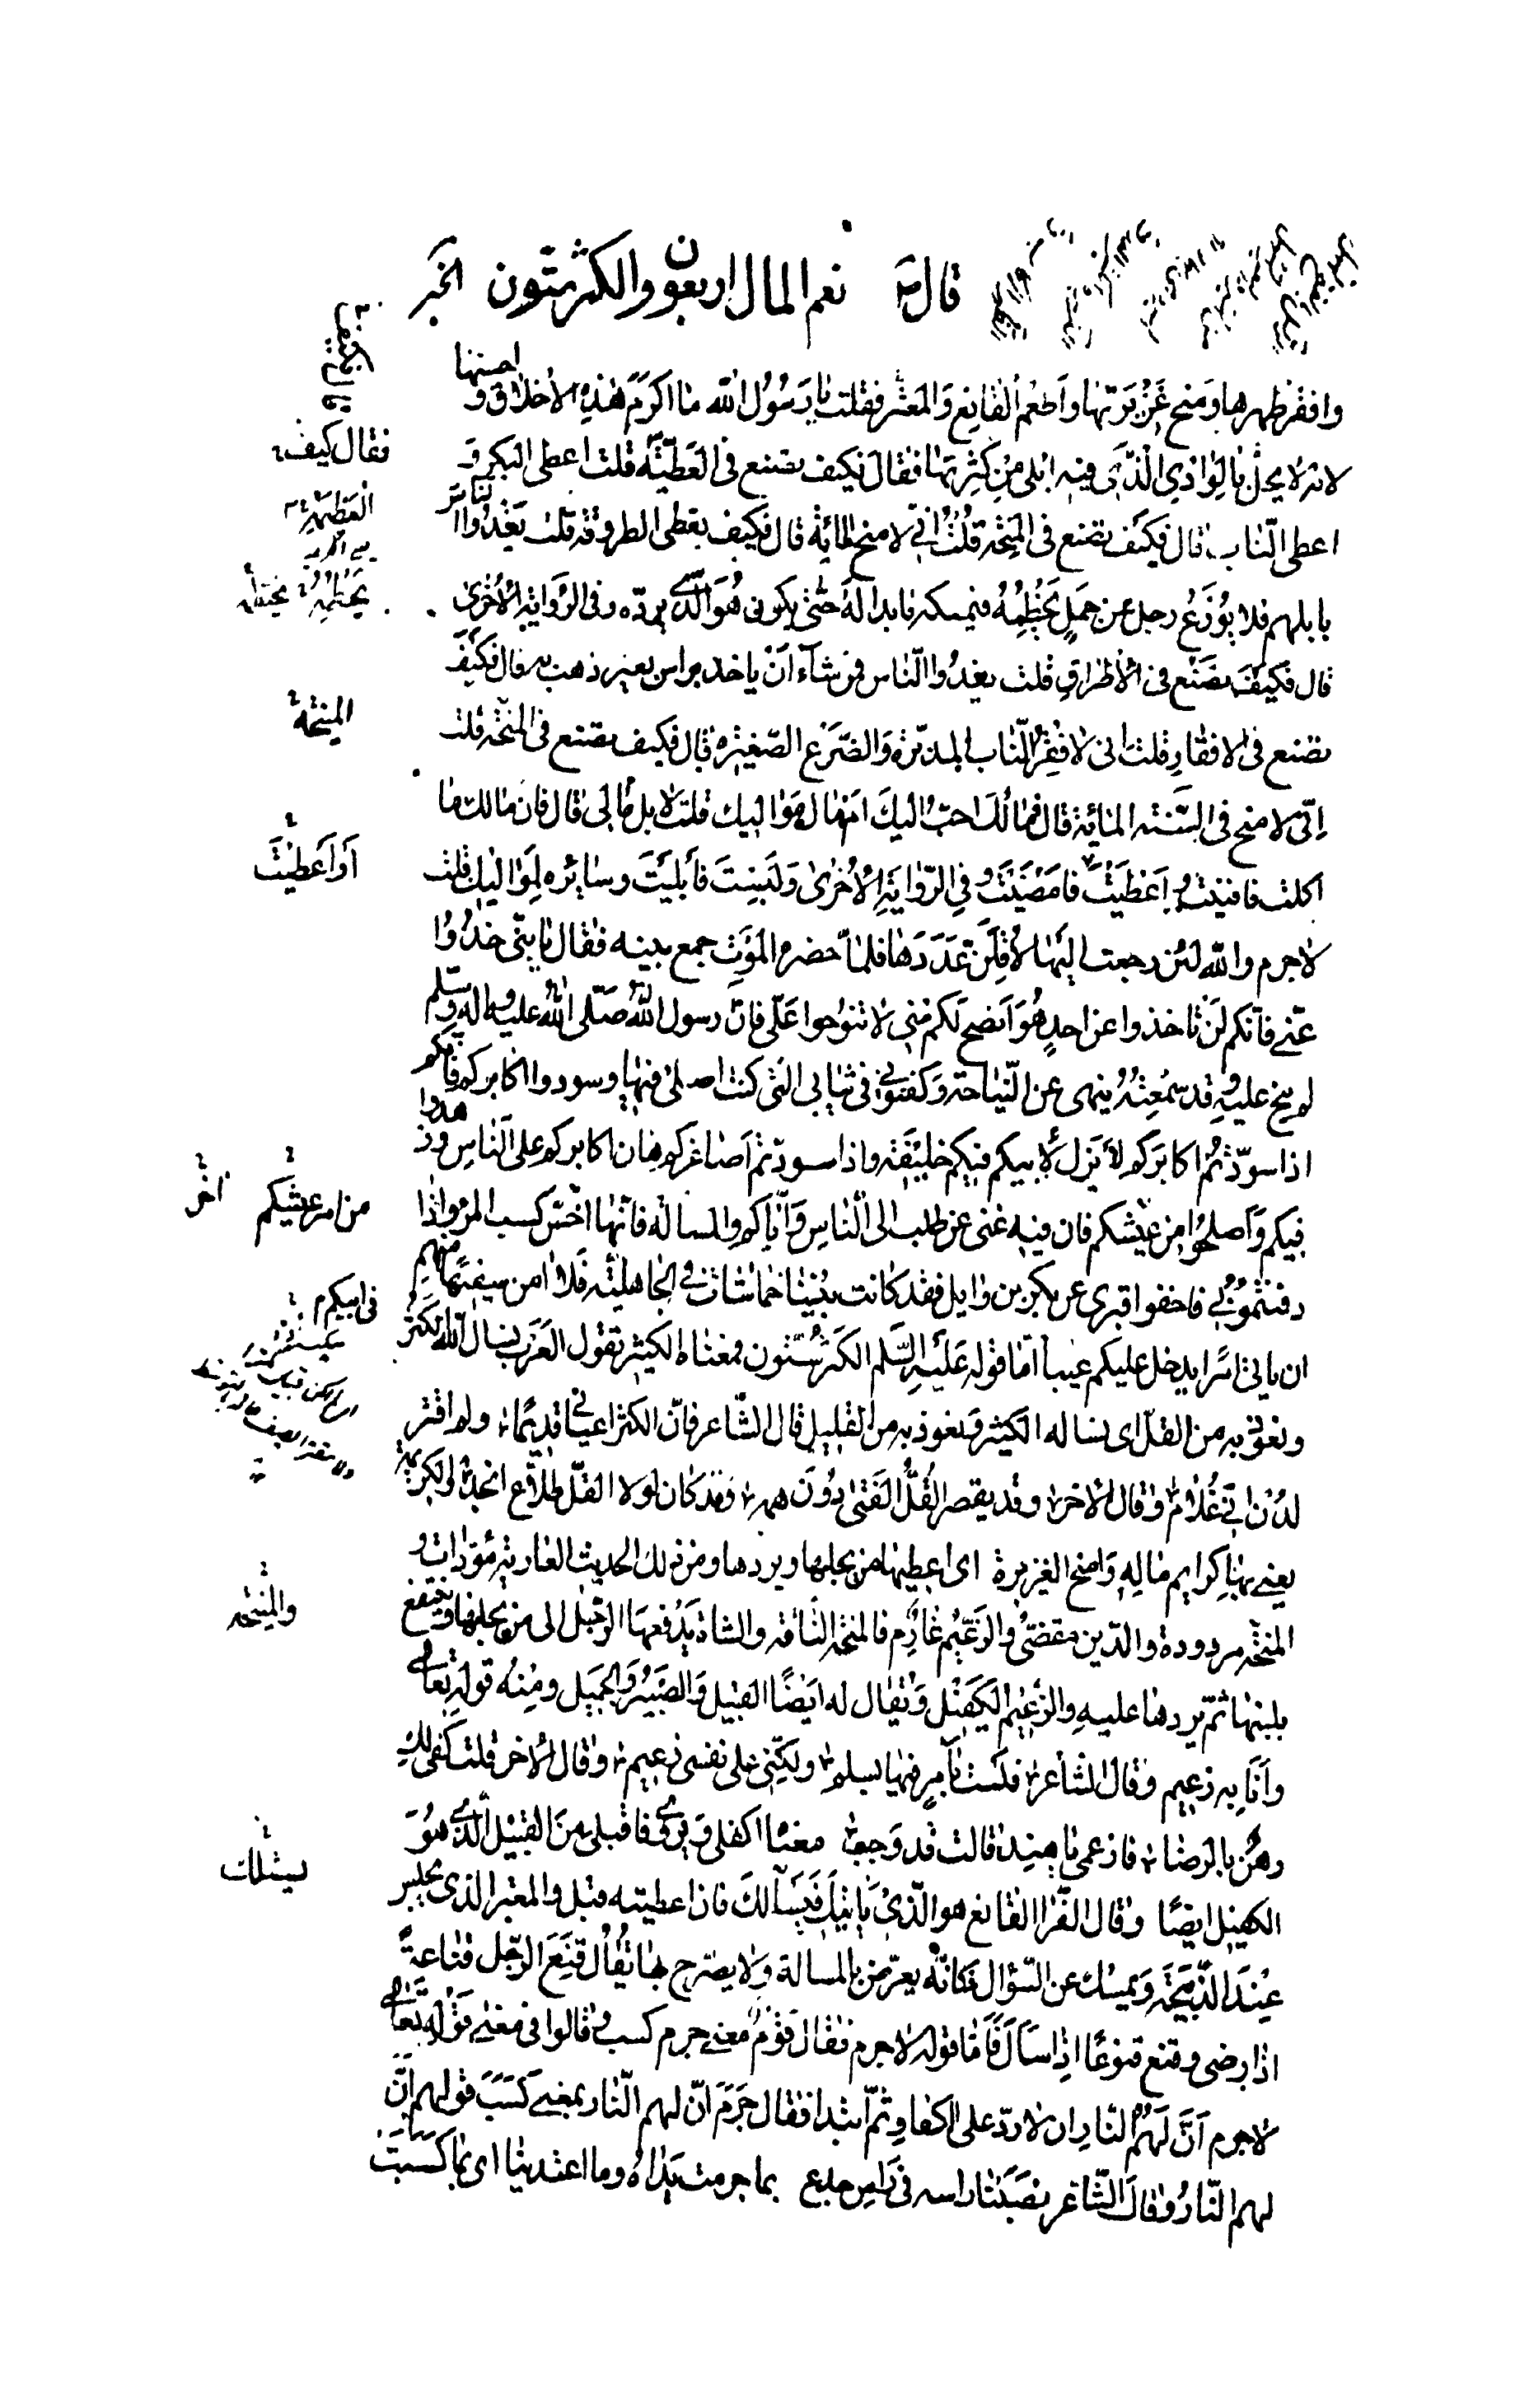 قال نعم المال اربعون والكثر ستون الخبر
وافقر ظهرها ومنح غزيرتها واطعم القانع والمعتر فقلت يا رسول الله ما اكرم هذه الاخلاق و احسنها
لانه لا يحل بالوادي الذى فيه ابلى من كثرتها فقال فكيف تصنع فى العطية قلت اعطى البكر و
فقال كيف
اعطى الناب قال فكيف تصنع فى المنيحة قلت انى لامنح المائة قال فكيف تعطى الطروقة قلت يغدوا الناس
بابلهم فلا يوزع رجل عن جمل يخطمه فيمسكه ما بدا له حتى يكون هو الذى يرده وفى الرواية الاخرى
قال فكيف تصنع فى الاطراق قلت يغدوا الناس فمن شاء ان ياخذ براس بعير ذهب به قال فكيف
تصنع فى الافقار قلت انى لافقر الناب المدبرة والضرع الصغيرة قال فكيف تصنع فى المنحة قلت
المنيحة
انى لامنح فى السنة المائة قال فمالك احب اليك ام مال مواليك قلت لا بل مالى قال فان مالك ما
اكلت فافنيت او اعطيت فامضيت وفى الرواية الاخرى ولبست فابليت وسايره لمواليك قلت
او اعطيت
لا جرم والله لئن رجعت اليها لاقلن عددها فلما حضره الموت جمع بنيه فقال يا بنى خذوا
عنى فانكم لن تاخذوا عن احد هو انصح لكم منى لا تنوحوا على فان رسول الله صلى الله عليه واله وسلم
لم ينح عليه وقد سمعته ينهى عن النياحة وكفنونى فى ثيابى التى كنت اصلى فيها وسودوا اكابركم فانكم
اذا سودتم اكابركم لا يزل لابيكم فيكم خليفة واذا سودتم اصاغركم هان اكابركم على الناس وزهدوا
فيكم واصلحوا من عيشكم فان فيه غنى عن طلب الى الناس واياكم والمسالة فانها اخس كسب المرء واذا
من امر عيشكم
اخر
دفنتمونى فاخفوا قبرى عن بكر بن وايل فقد كانت بيننا خماشات فى الجاهلية فلا امن سفيها منهم
ان ياتى امرا يدخل عليكم عيبا اما قوله عليه السلم الكثر ستون فمعناه الكثير تقول العرب نسال الله الكثر
فى ابيكم
ونعوذ به من القل اى نساله الكثير ونعوذ به من القليل قال الشاعر فان الكثر اعيانى قديما ولم اقتر
لدن انى غلام وقال الاخر وقد يقصر القل الفتى دون همه وقد كان لولا القل طلاع انجد والكريمة
يعنى بها كرايم ماله وامنح الغزيرة اى اعطيها من يحلبها ويردها ومن ذلك الحديث العارية مؤداة و
المنحة مردودة والدين مقضى والزعيم غارم فالمنحة الناقة والشاة يدفعها الرجل الى من يحلبها وينتفع
والمنيحة
بلبنها ثم يردها عليه والزعيم الكفيل ويقال له ايضا القبيل والصبير والحميل ومنه قوله تعالى
وانا به زعيم وقال الشاعر فلست بامر فيها بسلم ولكنى على نفسى زعيم وقال الاخر قلت كفى لك
رهن بالرضا فازعمى يا هند قالت قد وجب معنا اكفلى ويروى فاقبلى من القبيل الذى هو
الكفيل ايضا وقال الفراء القانع هو الذى ياتيك فيسالك فان اعطيته قبل والمعتر الذى يجلس
عند الذبيحة ويمسك عن السؤال فكانه يعرض بالمسالة ولا يصرح بها يقال قنع الرجل قناعة
اذا رضى وقنع قنوعا اذا سال فاما قوله لا جرم فقال قوم معنى جرم كسب وقالوا فى معنى قوله تعالى
لا جرم ان لهم النار ان لا رد على الكفار ثم ابتدا فقال جرم ان لهم النار بمعنى كسب قولهم ان
لهم النار وقال الشاعر نصبنا راسه فى راس جذع بما جرمت يداه وما اعتدينا اى بما كسبت